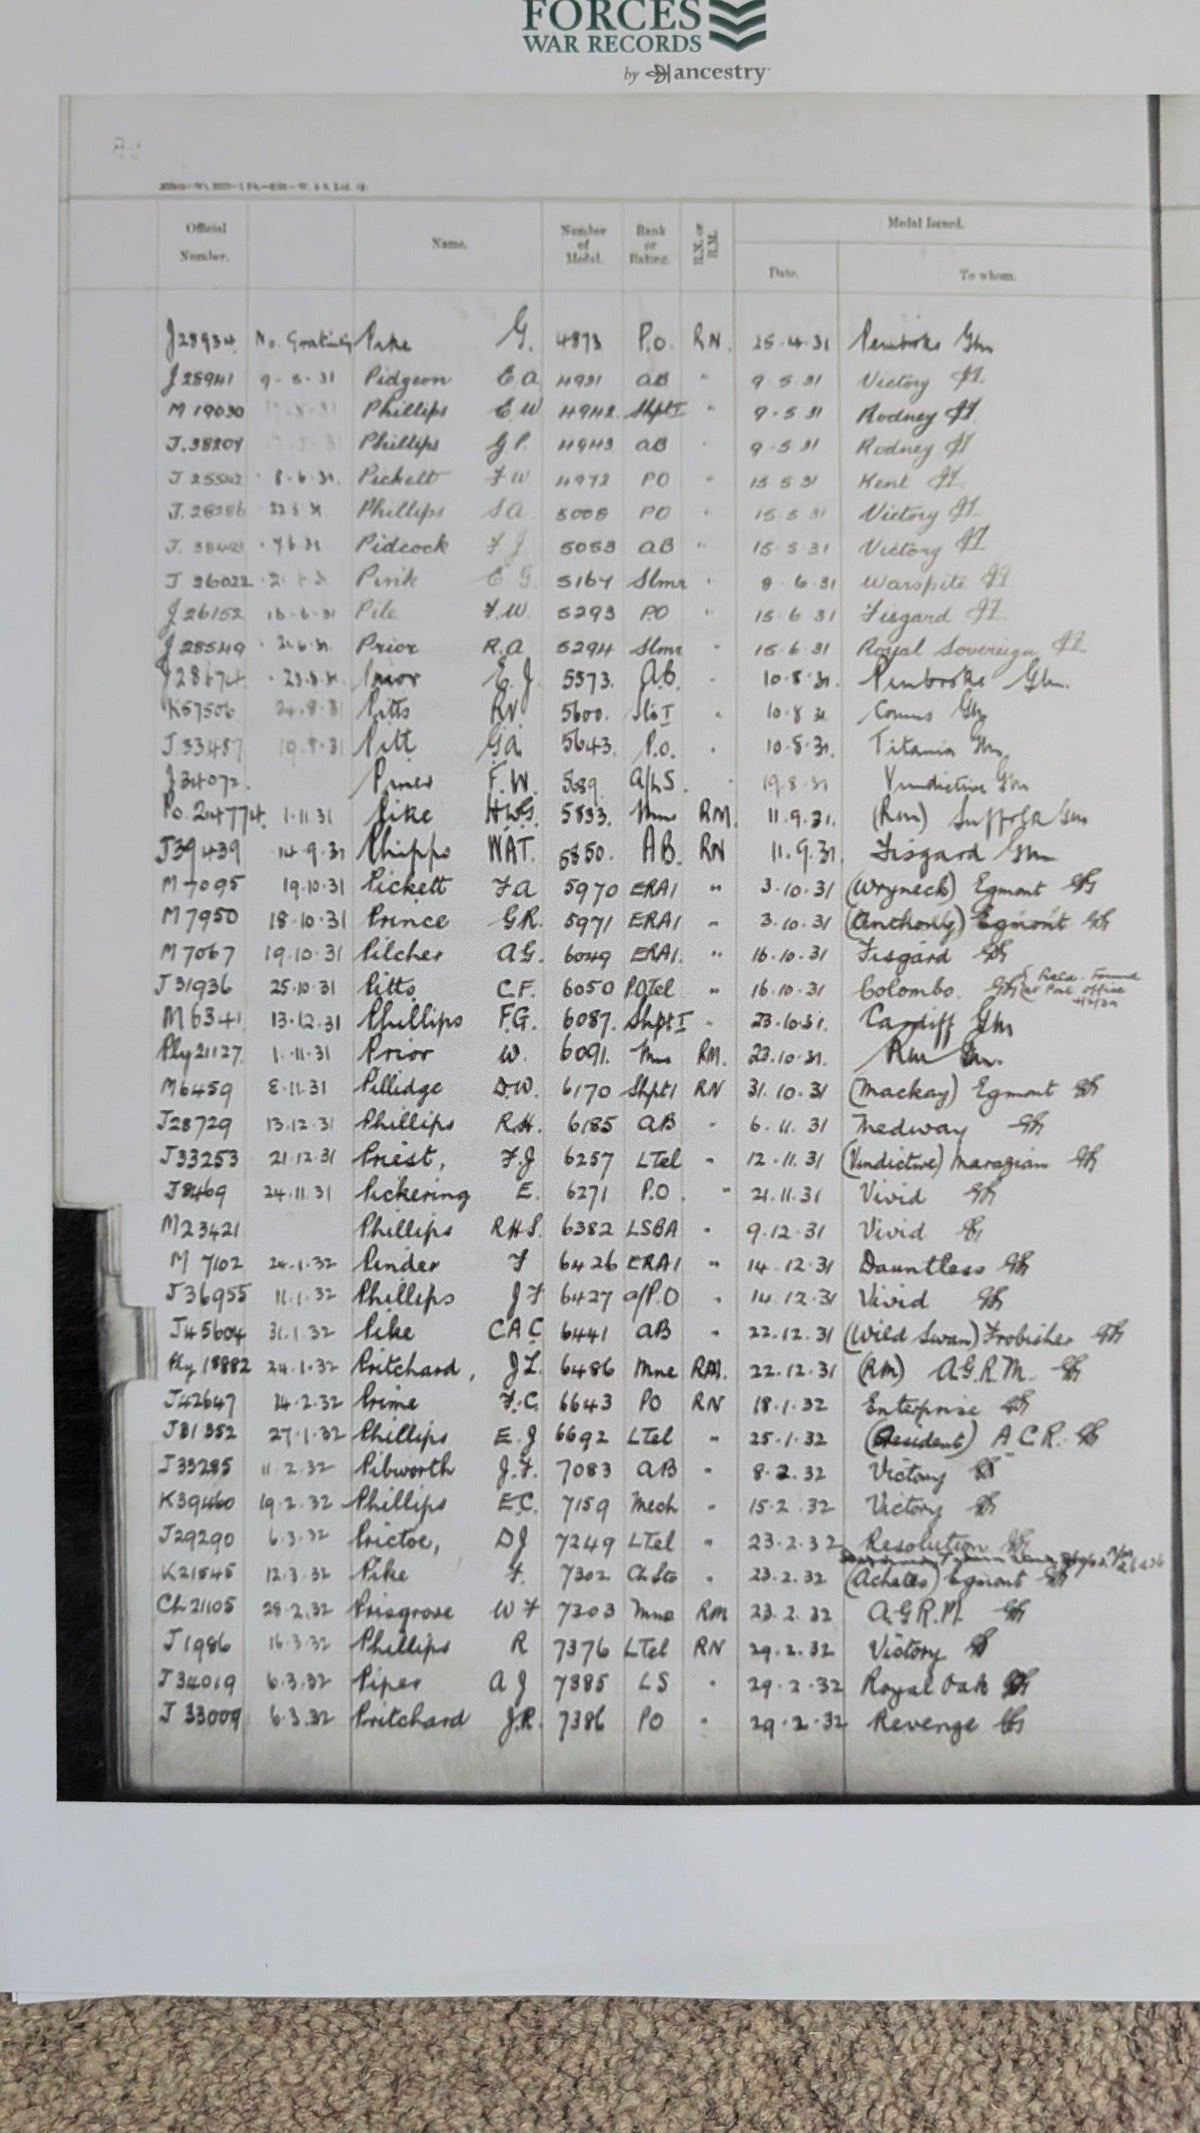 FORCES
WAR RECORDS
by ancestry
Official Number. Name. Number of Medal. Rank or Rating. R.N. or R.M. Medal Issued.
Date. To whom.
J28934 No. Gratuity Pike G. 4873 P.O. RN. 25.4.31 Pembroke Gm
J25941 9.5.31 Pidgeon E.A 4931 AB " 9.5.31 Victory
M19030 Phillips E.W 4942 Shpt I " 9.5.31 Rodney
J.38207 Phillips G.P. 4943 AB " 9.5.31 Rodney
J 25502 8.6.31. Pickett F W 4972 PO " 15 5 31 Kent
J.28286 22.5.31 Phillips S A 5008 PO " 15.5.31 Victory
J. 7.6.31 Pidcock F J 5053 AB " 15.5.31 Victory
J 36022 Pink E G 5167 Slmr " 8.6.31 Warspite
J 26152 16.6.31 Pile F.W. 5293 PO " 15 6 31 Fisgard
J 25549 Prior R.A. 5294 Slmr " 15.6.31 Royal Sovereign
J28674 23.8.31 Prior E.J. 5573. A.B. " 10.8.31. Pembroke Gm.
K57506 24.8.31 Pitts R.V 5600. Sto I " 10.8.31. Comus Gm
J 33487 19.8.31 Pitt G.A. 5643. P.O. " 10.8.31. Titania Gm.
J 34072. F.W. 5689. A/LS. " 19.8.31 Vindictive Gm
Po. 214774. 1.11.31 Pike H.W.G. 5833. Mne RM. 11.9.31. (Rm) Suffolk Gm
J39439 14.9.31 Phipps W.A.T. 5850. AB. RN 11.9.31. Fisgard Gm
M 7095 19.10.31 Pickett F A 5970 ERA1 " 3.10.31 (Wryneck) Egmont
M 7950 18.10.31 Prince G.R. 5971 ERA1 " 3.10.31 (Anthony) Egmont
M 7067 19.10.31 Pilcher A.G. 6049 ERA1. " 16.10.31 Fisgard
J 31936 25.10.31 Pitts C.F. 6050 POTel " 16.10.31 Colombo. Found at Post Office
M 6341 13.12.31 Phillips F.G. 6087. Shpt I " 23.10.31. Cardiff Gm
Ply 21127. 1.11.31 Prior W. 6091. Mne RM. 23.10.31. Rm Gm.
M6459 8.11.31 Pillidge D.W. 6170 Shpt 1 RN 31.10.31 (Mackay) Egmont
J28729 13.12.31 Phillips R.H. 6185 AB " 6.11.31 Medway
J33253 21.12.31 Priest, F.J 6257 LTel " 12.11.31 (Vindictive) Marazian
J8469 24.11.31 Pickering E. 6271 P.O. " 21.11.31 Vivid
M23421 Phillips R.H.S. 6382 LSBA " 9.12.31 Vivid
M 7102 24.1.32 Pinder F 6426 ERA1 " 14.12.31 Dauntless
J36955 11.1.32 Phillips J F 6427 a/P.O " 14.12.31 Vivid
J45604 31.1.32 Pike C A C 6441 AB " 22.12.31 (Wild Swan) Frobisher
Ply 18882 24.1.32 Pritchard, J L. 6486 Mne RM. 22.12.31 (RM) A.G.R.M.
J42647 14.2.32 Prime F.C. 6643 PO RN 18.1.32 Enterprise
J31352 27.1.32 Phillips E.J 6692 LTel " 25.1.32 A.C.R.
J33285 11.2.32 Pibworth J.F. 7083 AB " 8.2.32 Victory
K39460 19.2.32 Phillips E.C. 7159 Mech " 15.2.32 Victory
J29290 6.3.32 Prictoe, D J 7249 LTel " 23.2.32 Resolution
K21545 12.3.32 Pike F. 7302 Ch Sto " 23.2.32 (Achates) Egmont
Ch 21105 28.2.32 Prisgrove W F 7303 Mne RM 23.2.32 A.G.R.M.
J1986 16.3.32 Phillips R 7376 LTel RN 29.2.32 Victory
J34019 6.3.32 Piper A J 7385 LS " 29.2.32 Royal Oak
J 33009 6.3.32 Pritchard J.R. 7386 PO " 29.2.32 Revenge